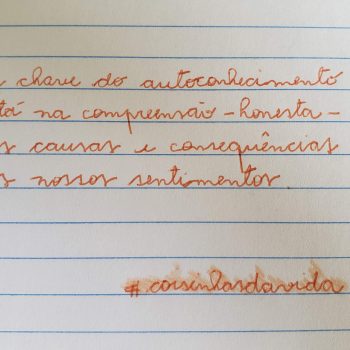 chave do autoconhecimento
tá na compreensão - honesta -
s causas e consequências
s nossos sentimentos
#coisinhasdavida